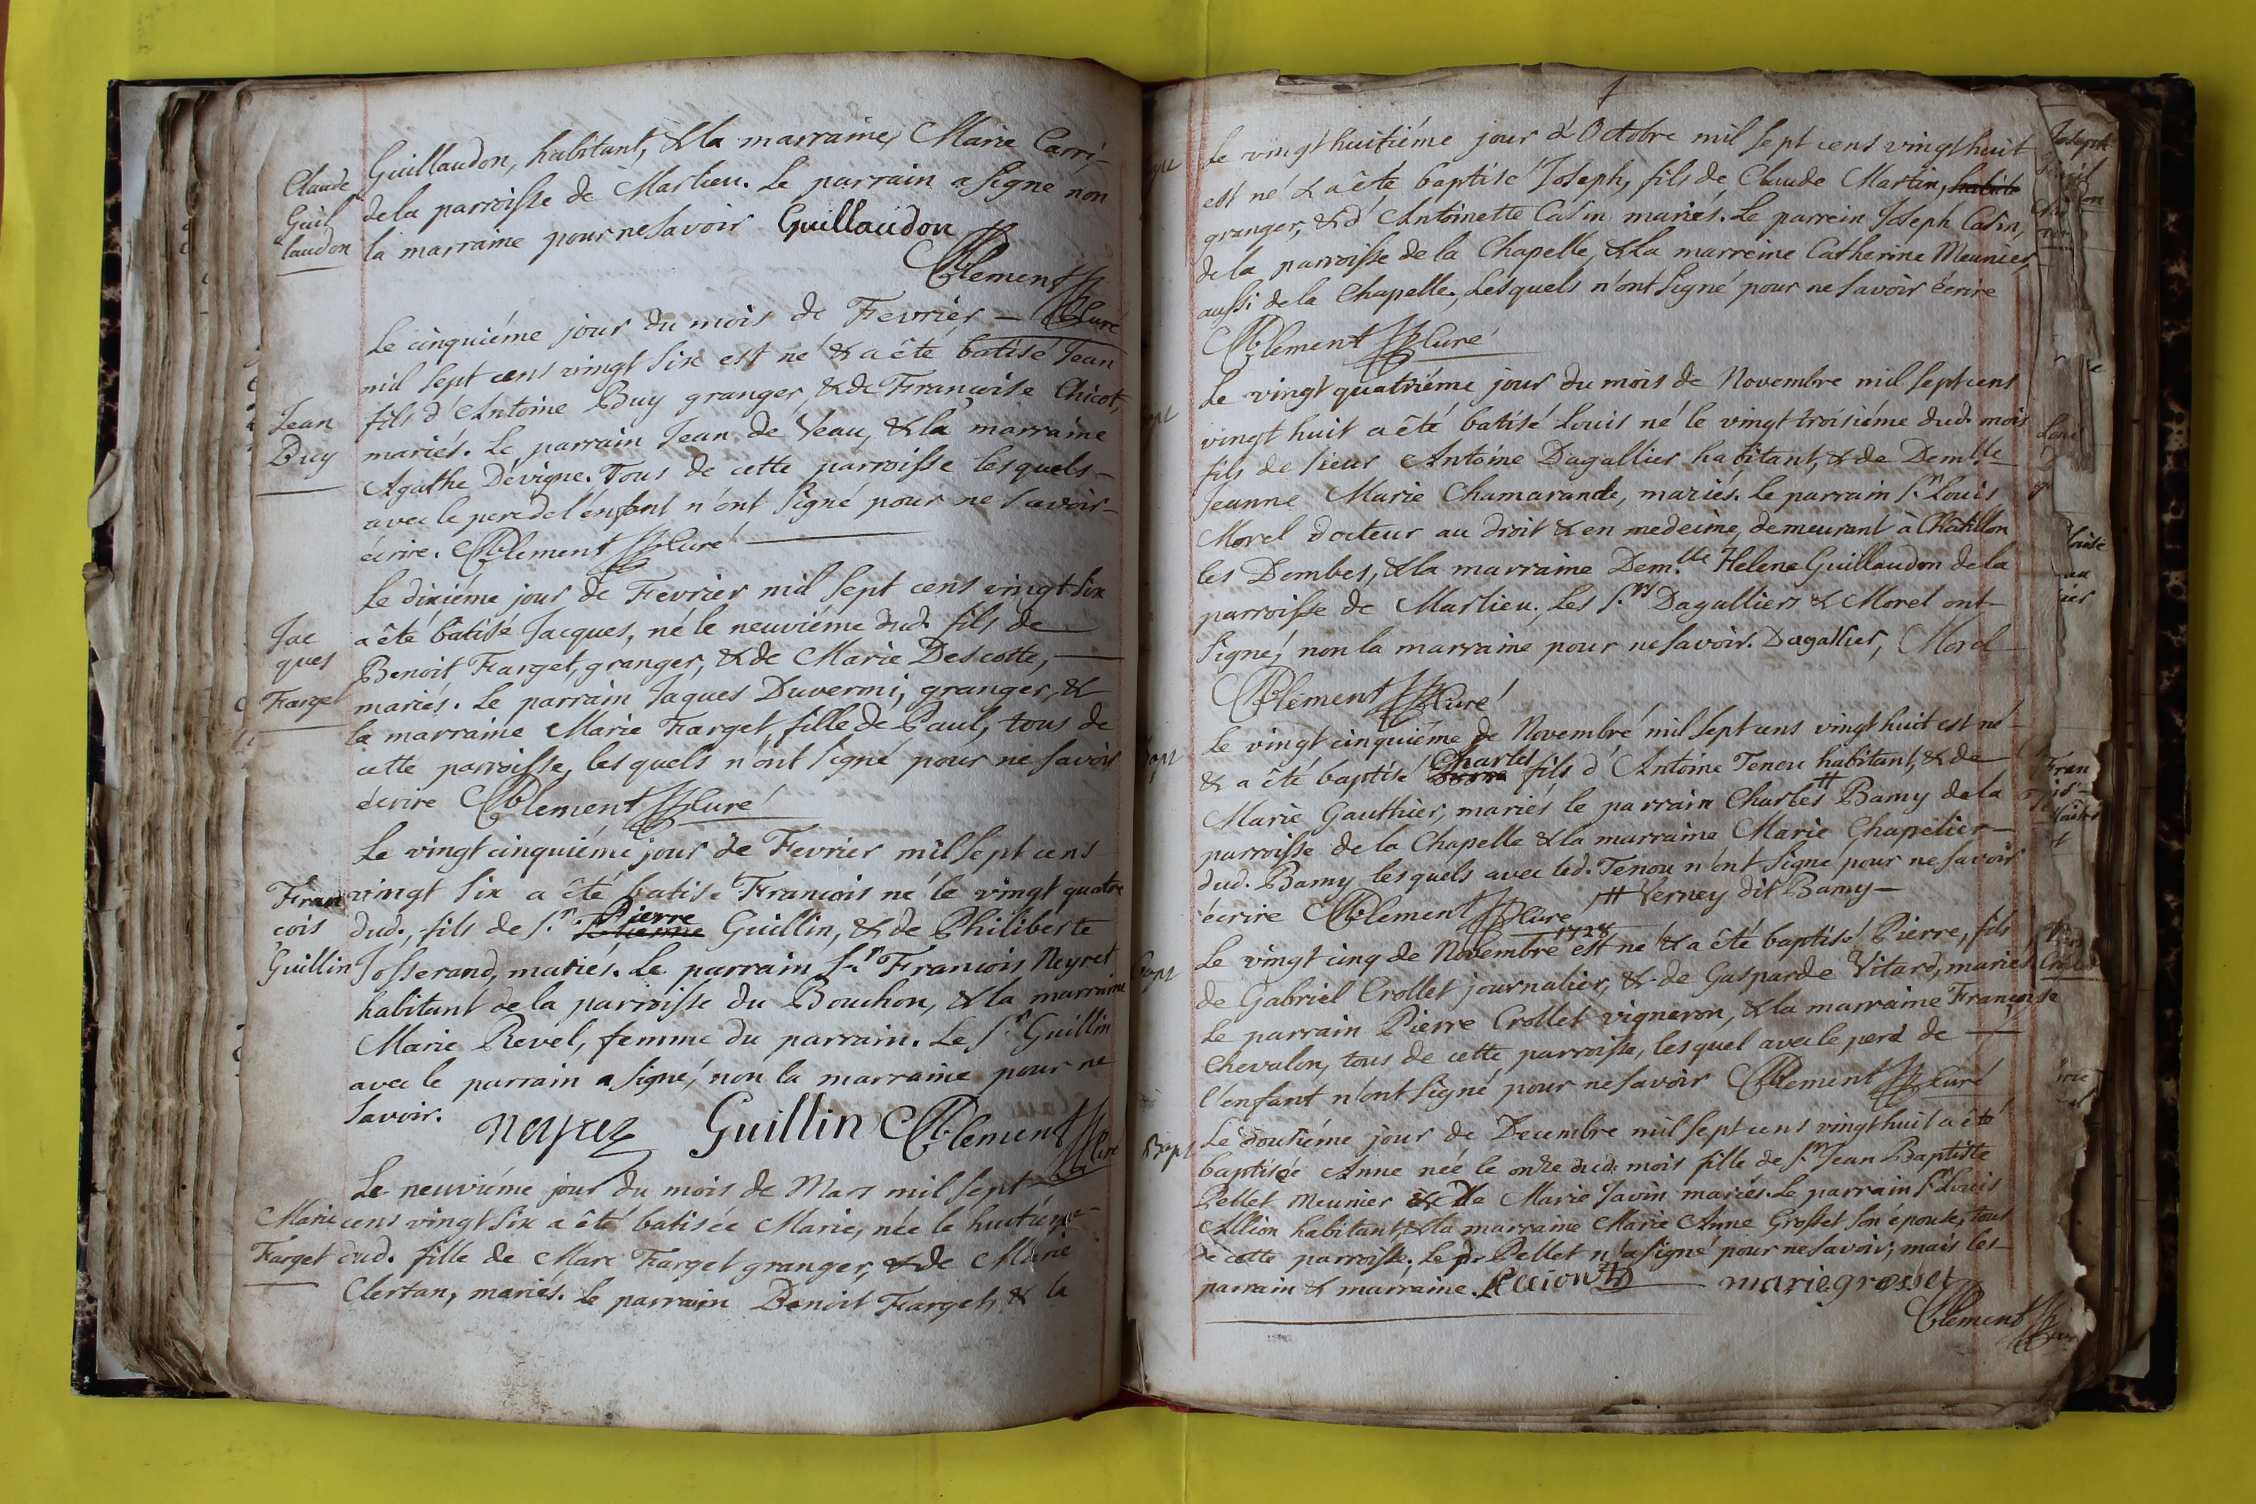 Guillaudon, habitant, & la marraine Marie Carri-
Claude
de la parroisse de Marlieu. Le parrain a signe non
Guil
laudon
la marraine pour ne savoir Guillaudon
Clement
Curé
Le cinquiéme jour du mois de Fevrier —
mil sept cens vingt six est né & a êté batisé Jean
fils d'Antoine Buy granger, & de Françoise Chicot,
Jean
Buy
mariés. Le parrain Jean de Veau, & la marraine
Agathe Dévigne. Tous de cette parroisse lesquels -
avec le pere de l'enfant n'ont signé pour ne savoir -
écrire. Clement Curé
Le dixiéme jour de Fevrier mil sept cens vingt six
Jac
ques
Farget
a êté batisé Jacques, né le neuviéme dud. fils de
Benoit Farget, granger, & de Marie Descotte,
mariés. Le parrain Jaques Duverni, granger, &
la marraine Marie Farget, fille de Paul, tous de
cette parroisse, lesquels n'ont signé pour ne savoir
écrire Clement Curé
Le vingt cinquiéme jour de Fevrier mil sept cens
Fran
cois
Guillin
vingt six a êté batisé Francois né le vingt quatre
dud., fils de S.r Pierre Guillin, & de Philiberte
Josserand, mariés. Le parrain S.r Francois Neyret
habitant de la parroisse du Bouchou, & la marraine
Marie Revel, femme du parrain. Le S.r Guillin
avec le parrain a signé, non la marraine pour ne
savoir.
Guillin Clement
Curé
Le neuviéme jour du mois de Mars mil sept
Marie
Farget
cens vingt six a êté batisée Marie, née le huitiéme
dud. fille de Marc Farget granger, & de Marie
Clertan, mariés. Le parrain Benoit Farget, & la
Le vingt huitiéme jour d'Octobre mil sept cens vingt huit
est né & a êté baptisé Joseph, fils de Claude Martin, habit
granger, & d'Antoinette Casin mariés. Le parrein Joseph Casin,
de la parroisse de la Chapelle, & la marreine Catherine Meunier,
aussi de la Chapelle. Lesquels n'ont signé pour ne savoir écrire
Clement Curé
Le vingt quatriéme jour du mois de Novembre mil sept cens
vingt huit a êté batisé Louis né le vingt troisiéme dud. mois
fils de sieur Antoine Dagallier habitant, & de Dem.lle
Jeanne Marie Chamarande, mariés. Le parrain S.r Louis
Morel docteur au droit & en medecine, demeurant à Châtillon
les Dombes, & la marraine Dem.lle Helene Guillaudon de la
parroisse de Marlieu. Les S.rs Dagallier & Morel ont
signé, non la marraine pour ne savoir. Dagallier, Morel
Clement Curé
Le vingt cinquiéme de Novembre mil sept cens vingt huit est né
& a êté baptisé Charles fils d'Antoine Tenou habitant, & de
Marie Gauthier, mariés le parrain Charles # Bamy de la
parroisse de la Chapelle & la marraine Marie Chapelier
dud. Bamy lesquels avec led. Tenou n'ont signé pour ne savoir
écrire Clement Curé # Verney dit Bamy —
1728
Le vingt cinq de Novembre est né & a êté baptisé Pierre, fils
Bapt
de Gabriel Crollet journalier, & de Gasparde Vitard, mariés
Le parrain Pierre Crollet vigneron, & la marraine Françoise
Chevalon, tous de cette parroisse, lesquel avec le pere de
l'enfant n'ont signé pour ne savoir Clement Curé
Le dousiéme jour de Decembre mil sept cens vingt huit a êté
Bapt
baptisée Anne née le onze dud. mois fille de S.r Jean Baptiste
Pellet Meunier & de Marie Javin mariés. Le parrain S.r Louis
Allion habitant, & la marraine Marie Anne Grosset son épouse, tous
de cette parroisse. Le pr Pellet n'a signé pour ne savoir, mais les
parrain & marraine. Allion marie grosset
Clement
Curé